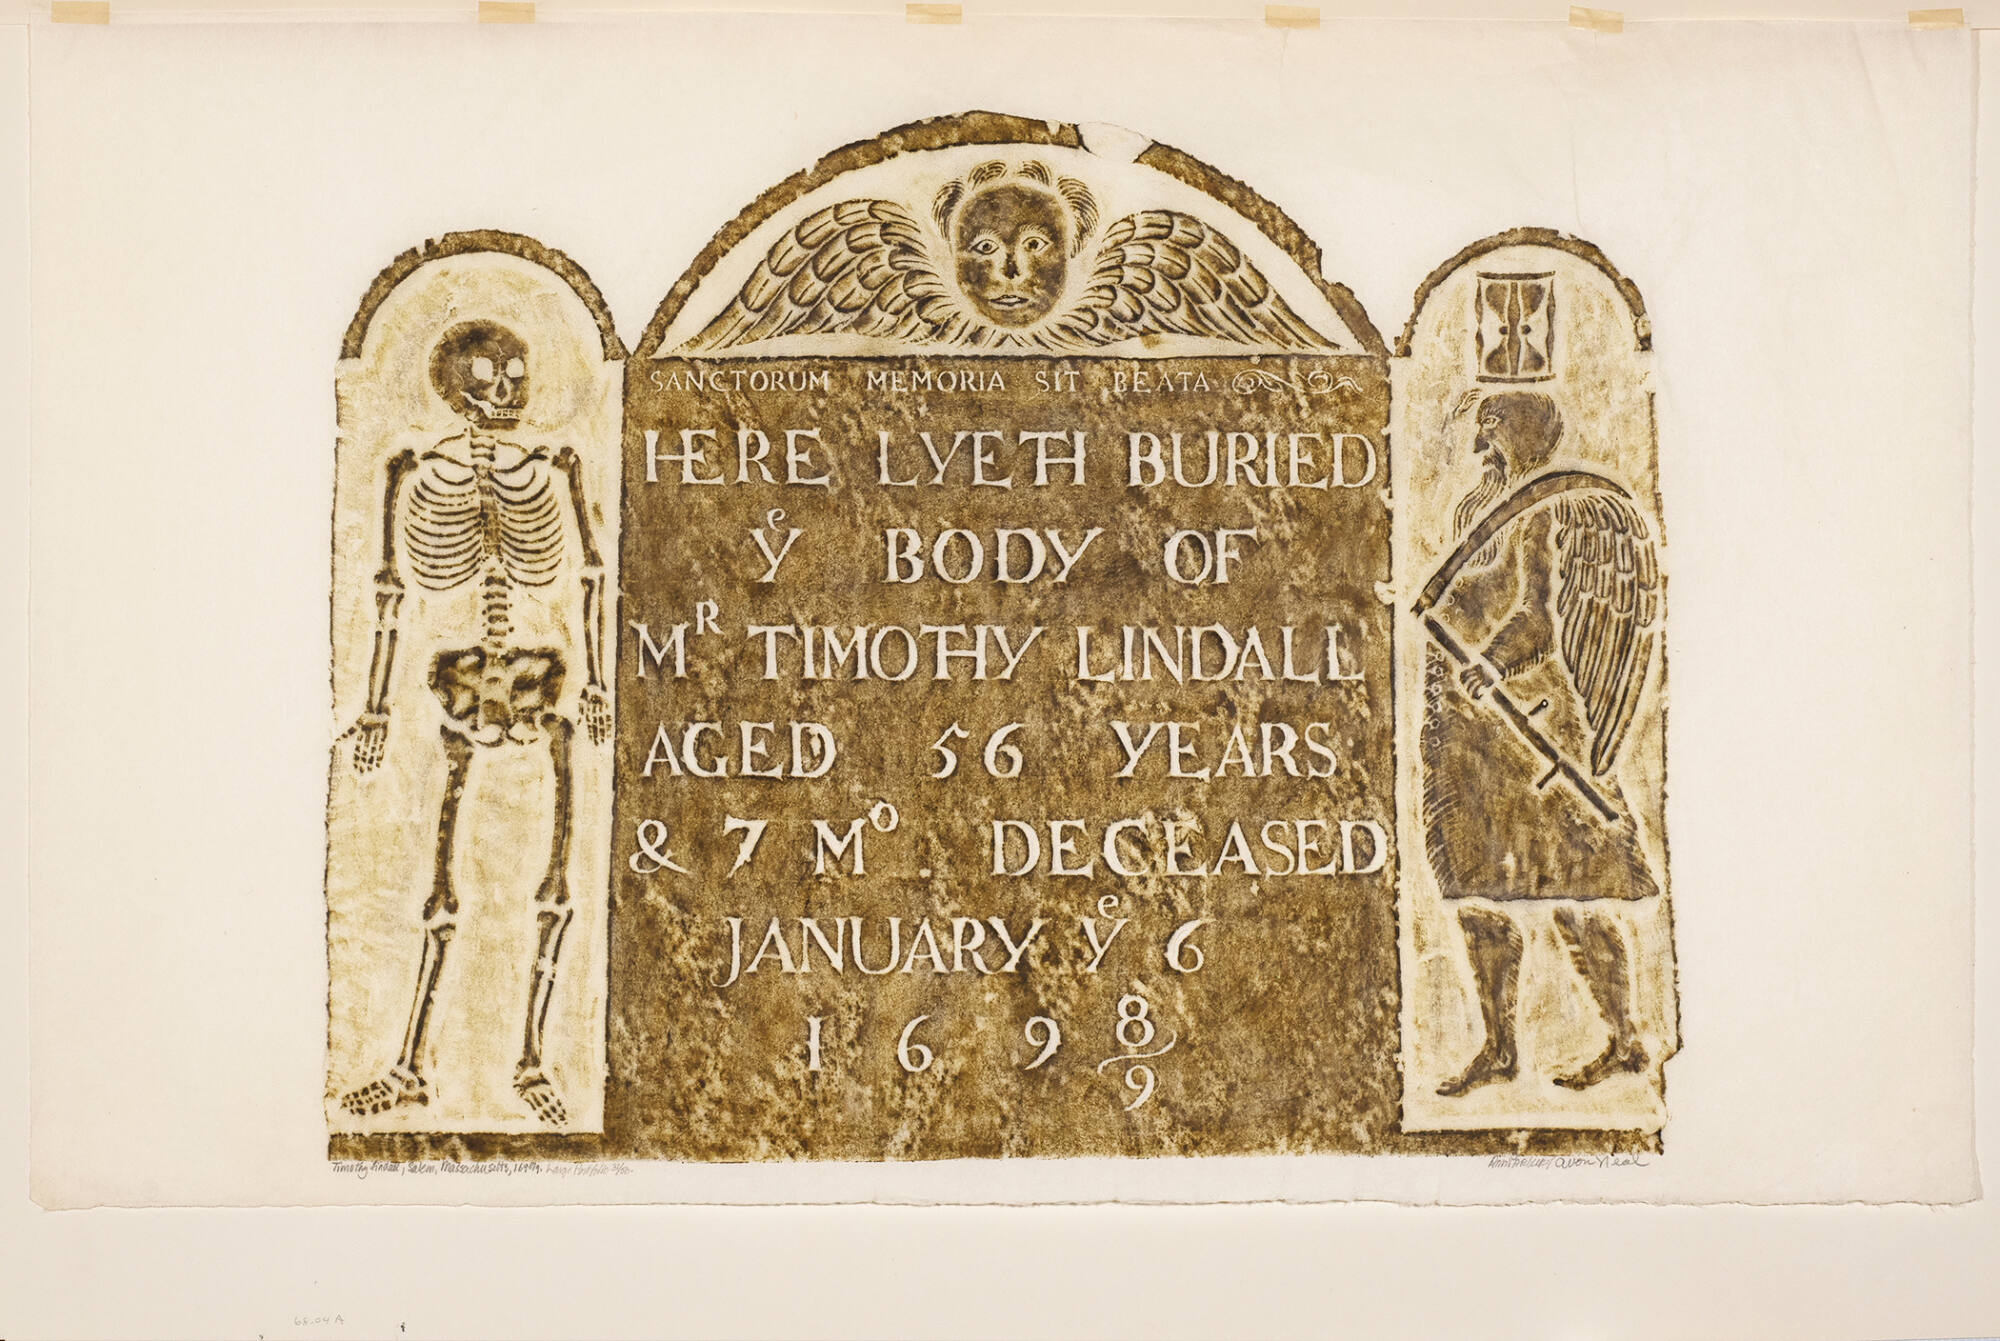 SANCTORUM MEMORIA SIT BEATA
HERE LYETH BURIED
Yᵉ BODY OF
Mᴿ TIMOTHY LINDALL
AGED 56 YEARS
& 7 Mᴼ. DECEASED
JANUARY Yᵉ 6
169 8/9
Timothy Lindall, Salem, Massachusetts, 1698/9. Large Portfolio
Ann Parker / Avon Neal
68.04 A